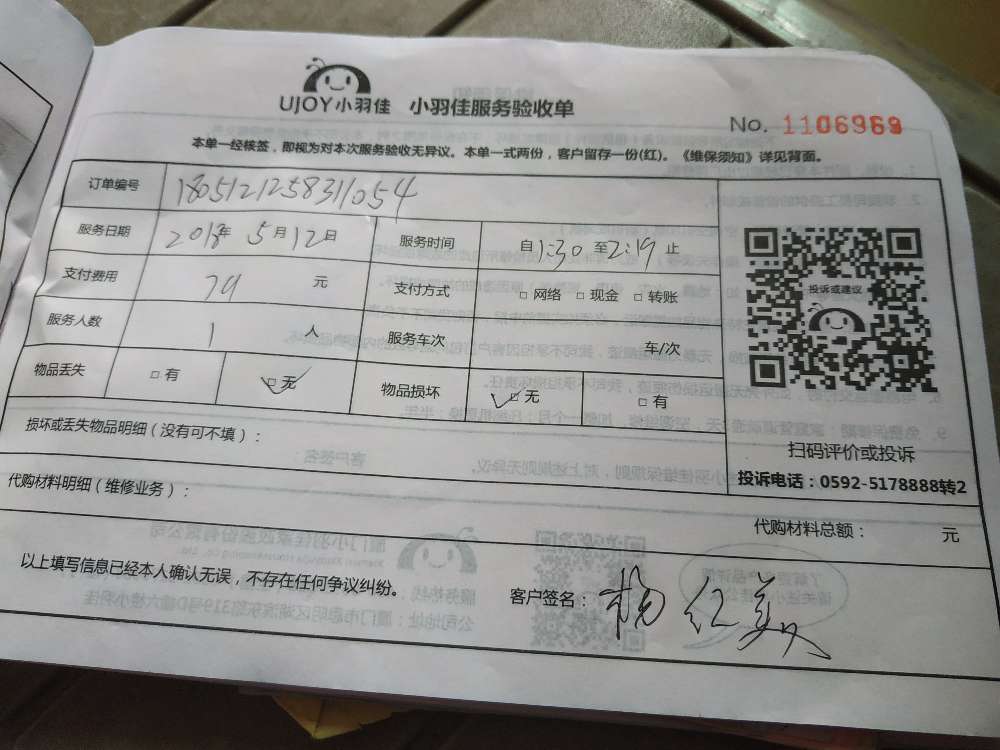 UJOY小羽佳 小羽佳服务验收单
No. 1106969
本单一经核签，即视为对本次服务验收无异议。本单一式两份，客户留存一份(红)。《维保须知》详见背面。
订单编号 180512125831054
服务日期 2018年 5月12日 服务时间 自1:30至2:19止
支付费用 79 元 支付方式 □ 网络 □ 现金 □ 转账
服务人数 1 人 服务车次 车/次
物品丢失 □ 有 □ 无 物品损坏 □ 无 □ 有
投诉或建议
扫码评价或投诉
投诉电话：0592-5178888转2
损坏或丢失物品明细（没有可不填）：
代购材料明细（维修业务）：
代购材料总额： 元
以上填写信息已经本人确认无误，不存在任何争议纠纷。
客户签名：杨红英